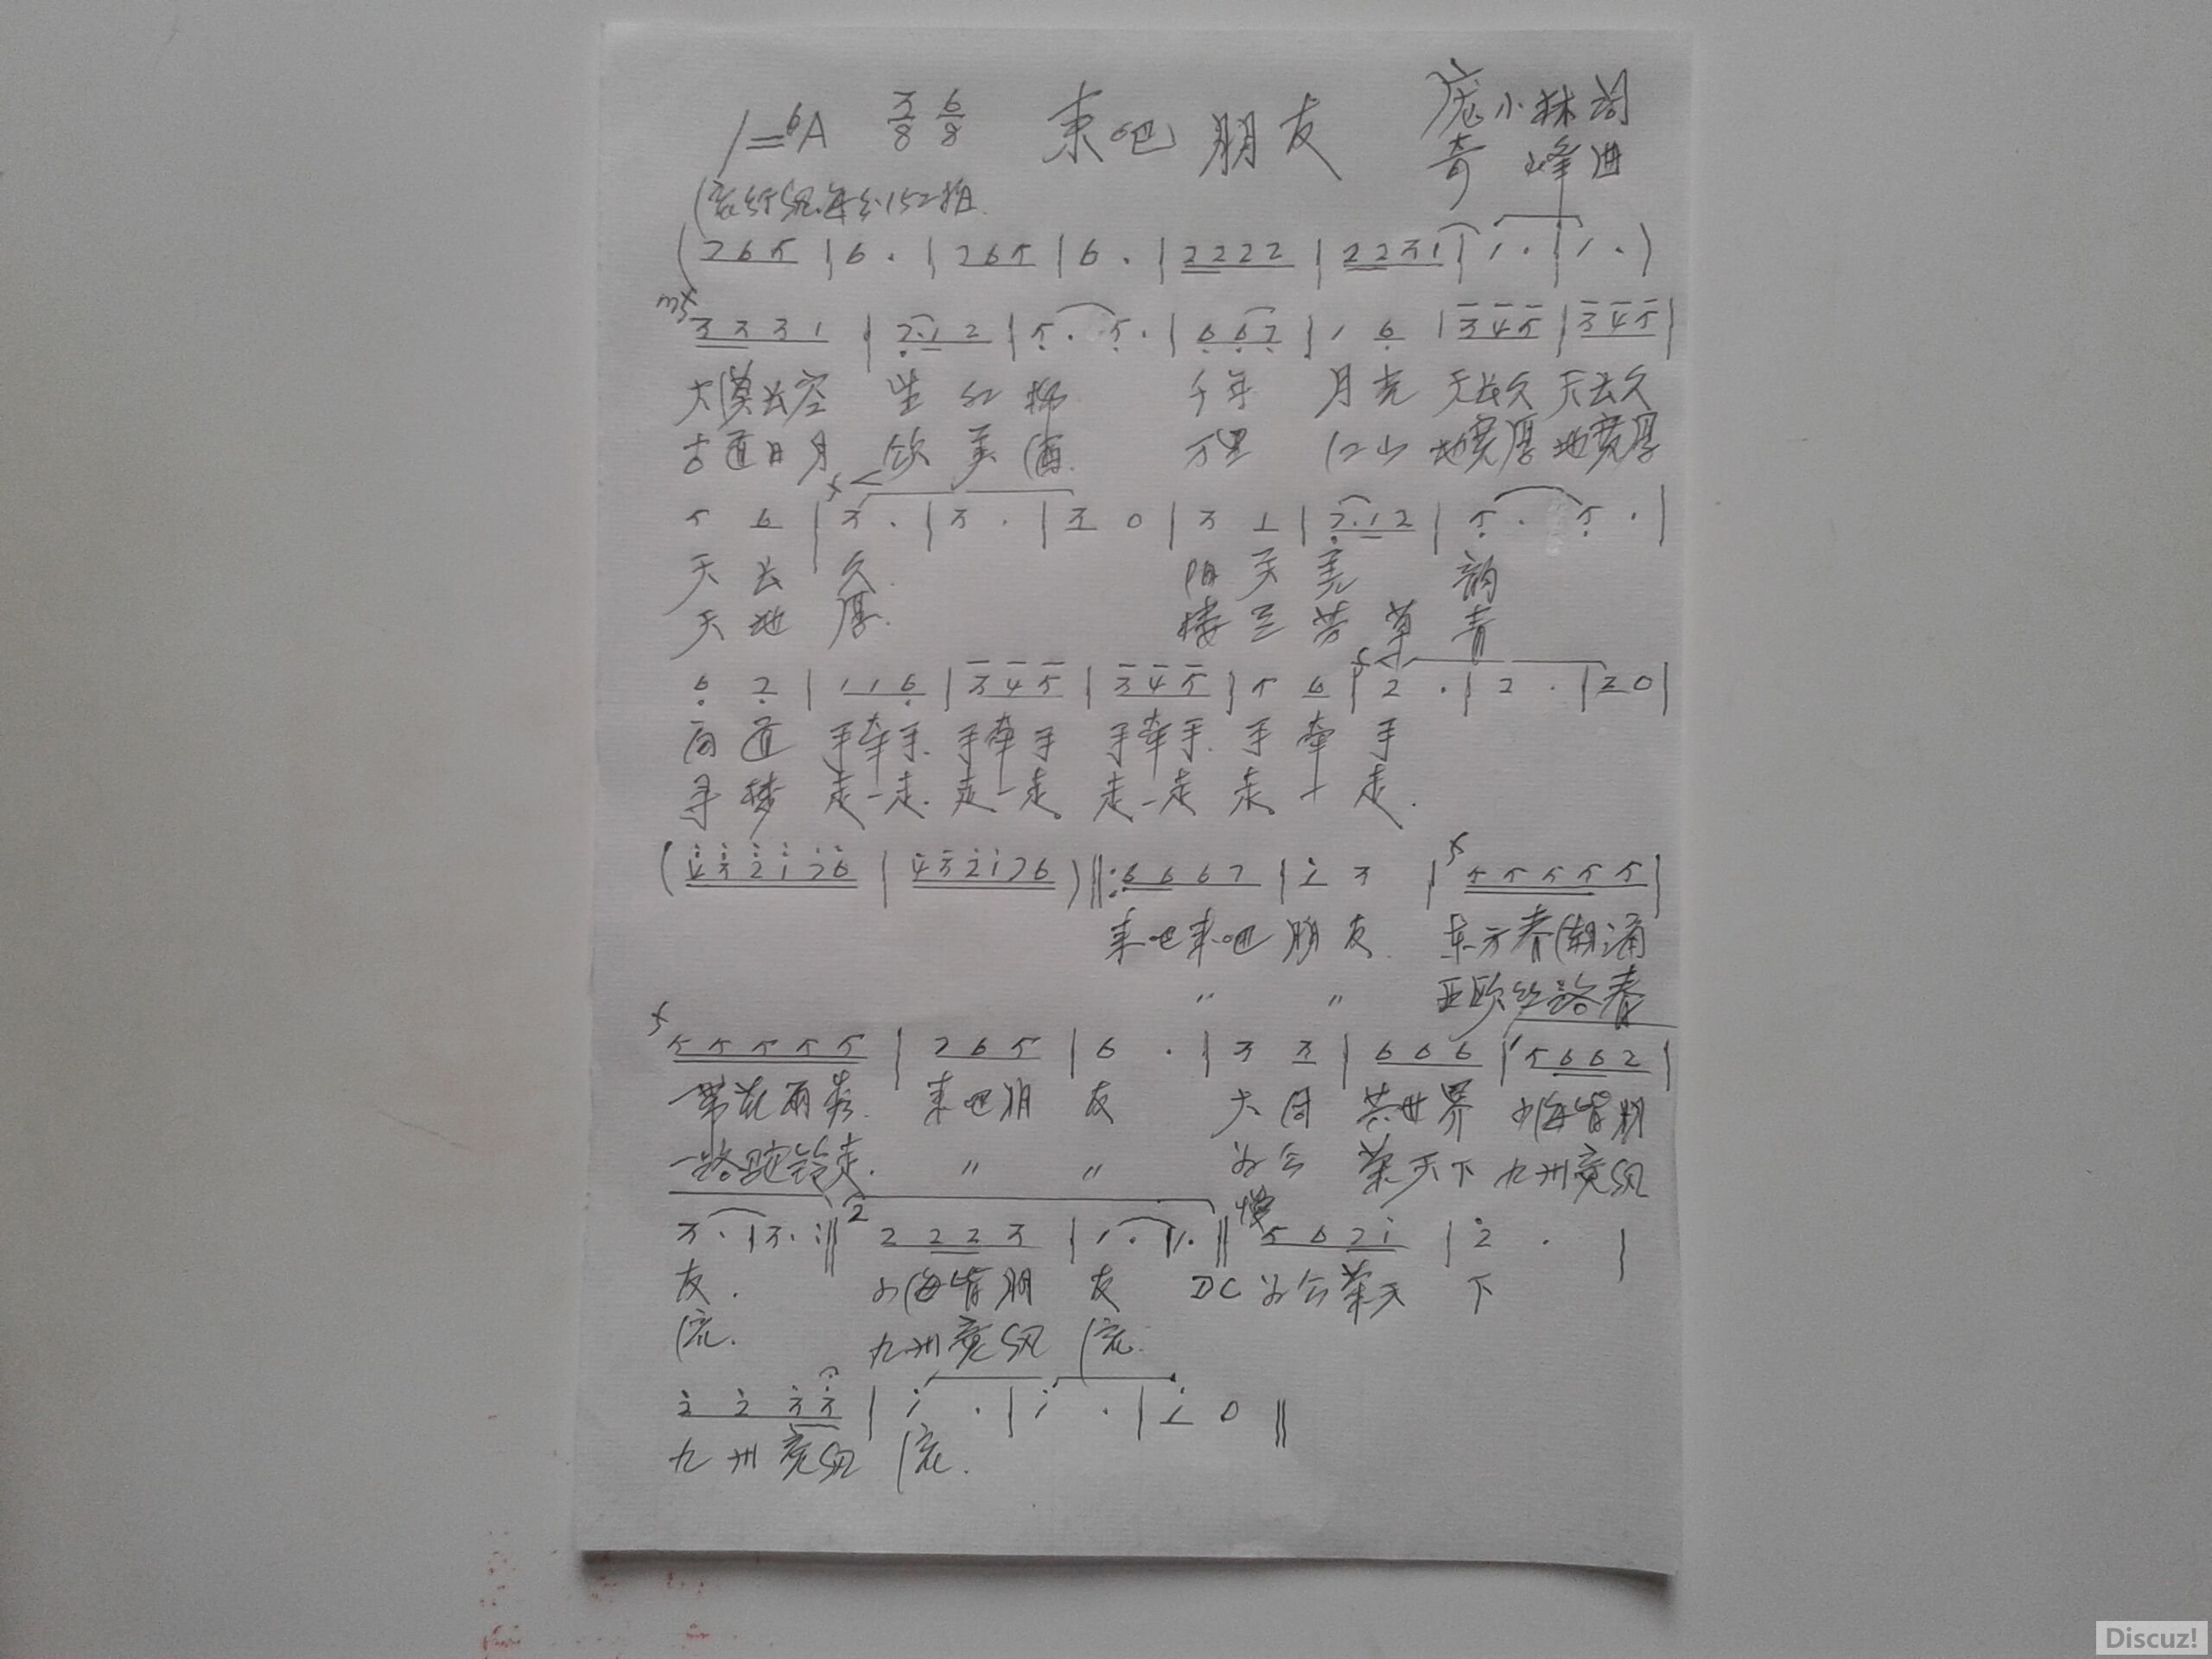 1=♭A 3/8 6/8 来吧朋友 庞小林词
奇峰曲
每分152拍
(7 6 5 | 6 · | 7 6 5 | 6 · | 2 2 2 2 | 2 2 3 1 | 1 · | 1 · )
mf 3 3 3 1 | 7 · 1 2 | 5 · 5 · | 6 6 7 | 1 6 | 3 4 5 | 3 4 5 |
大漠长空 坐红柳 千年 月亮 天长久 天长久
古道日月 饮美酒 万里 江山 地宽厚 地宽厚
5 6 | 3 · | 3 · | 3 0 | 3 1 | 7 · 1 2 | 5 · 5 · |
天长久
天地厚 楼兰芳草青
6 7 | 1 1 6 | 3 4 5 | 3 4 5 | 5 6 | 2 · | 2 · | 2 0 |
古道 手牵手 手牵手 手牵手 手牵手
寻梦 走一走 走一走 走一走 走一走
(4 3 2 1 7 6 | 4 3 2 1 7 6 ) ‖: 6 6 6 7 | i 3 | f 5 5 5 5 5 |
来吧来吧朋友 东方春潮涌
〃 〃 亚欧丝路春
f 5 5 5 5 5 | 7 6 5 | 6 · | 3 3 | 6 6 6 | 1 5 6 6 2 |
一带花雨秀 来吧朋友 大同 共世界 四海皆朋
一路驼铃走 〃 〃 为公 荣天下 九州竞风
3 · | 3 · :‖ 2 2 2 2 3 | 1 · | 1 · ‖ 慢 5 6 7 i | 2 · |
友 四海皆朋友 DC 为公荣天下
流 九州竞风流
2 2 3 3 | i · | i · | i 0 ‖
九州竞风流
Discuz!